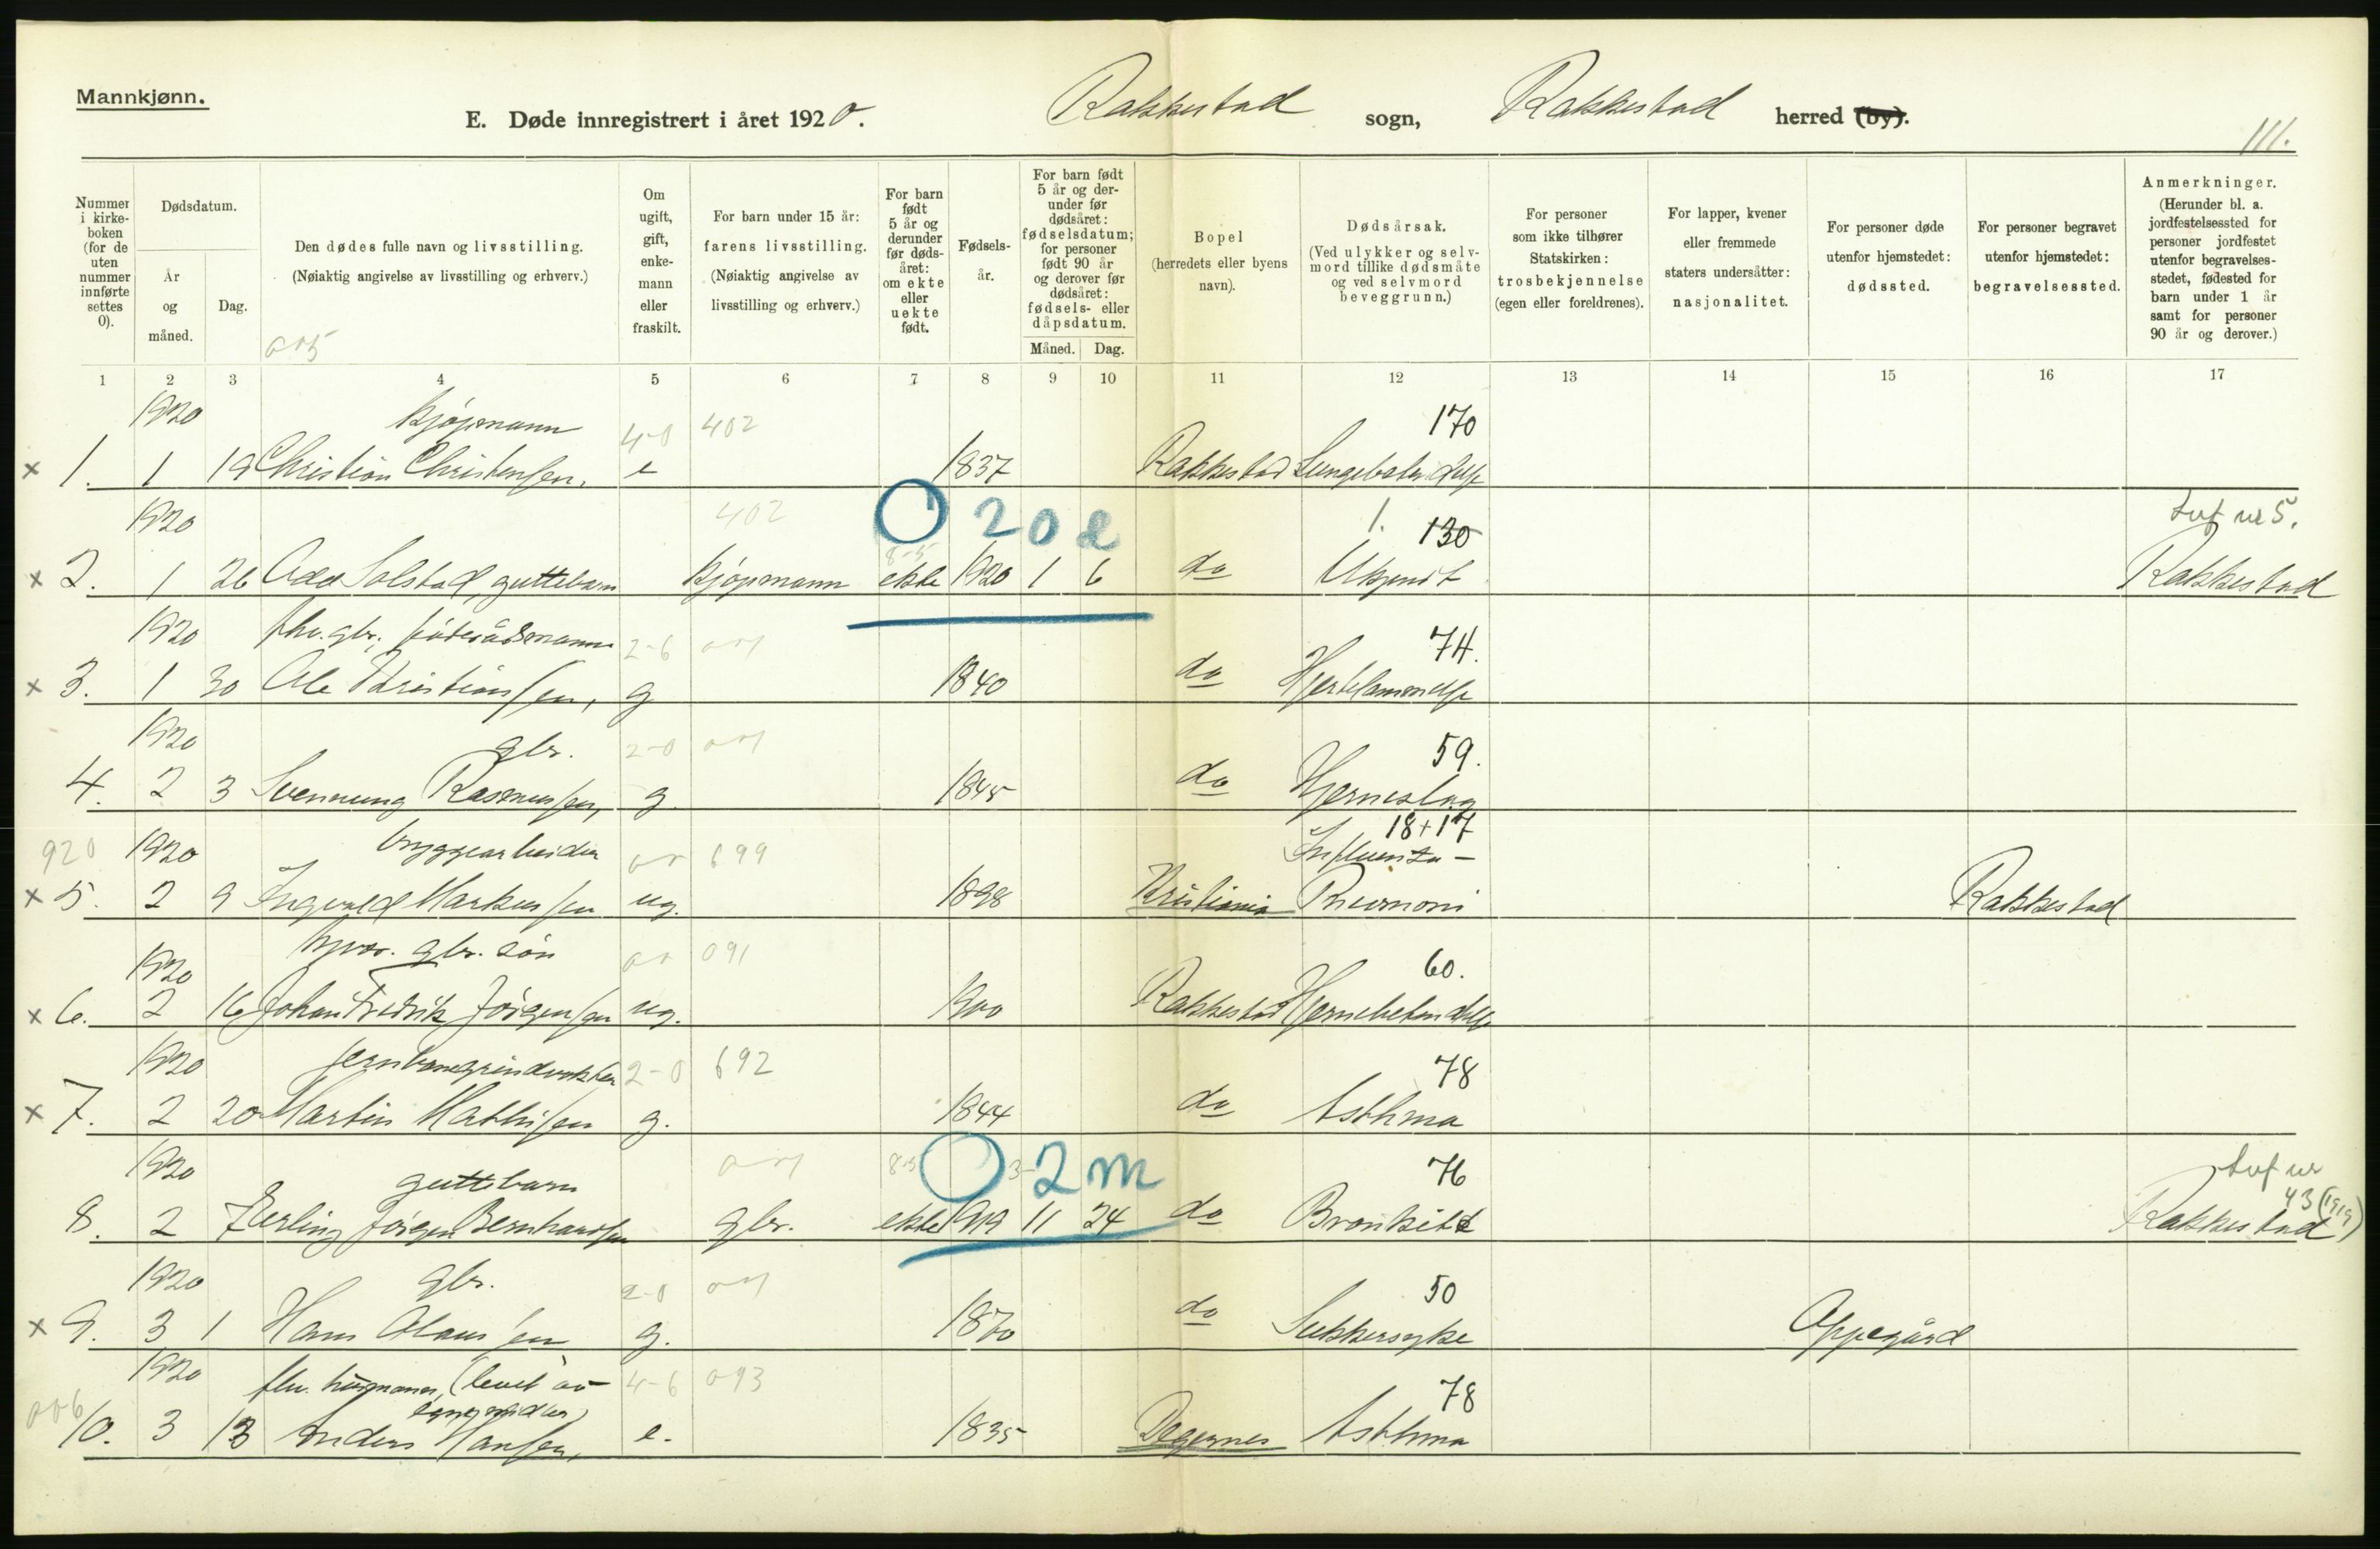 Mannkjønn.
E. Døde innregistrert i året 1920. Rakkestad sogn, Rakkestad herred (by).
111.
Nummer i kirkeboken (for de uten nummer innførte settes 0).
Dødsdatum.
År og måned.
Dag.
Den dødes fulle navn og livsstilling.
(Nøiaktig angivelse av livsstilling og erhverv.)
Om ugift, gift, enkemann eller fraskilt.
For barn under 15 år: farens livsstilling.
(Nøiaktig angivelse av livsstilling og erhverv.)
For barn født 5 år og derunder før dødsåret: om ekte eller uekte født.
Fødselsår.
For barn født 5 år og derunder før dødsåret: fødselsdatum; for personer født 90 år og derover før dødsåret: fødsels- eller dåpsdatum.
Måned. Dag.
Bopel
(herredets eller byens navn).
Dødsårsak.
(Ved ulykker og selvmord tillike dødsmåte og ved selvmord beveggrunn.)
For personer som ikke tilhører Statskirken: trosbekjennelse (egen eller foreldrenes).
For lapper, kvener eller fremmede staters undersåtter: nasjonalitet.
For personer døde utenfor hjemstedet: dødssted.
For personer begravet utenfor hjemstedet: begravelsessted.
Anmerkninger.
(Herunder bl. a. jordfestelsessted for personer jordfestet utenfor begravelsesstedet, fødested for barn under 1 år samt for personer 90 år og derover.)
1 2 3 4 5 6 7 8 9 10 11 12 13 14 15 16 17
1920 kjøpmann 4-0 402 170
x 1. 1 19 Christian Christensen, e 1837 Rakkestad Lungebetendelse
1920 402 O 20 d 1. 130 Lvf nr 5.
x 2. 1 26 Odd Solstad, guttebarn kjøpmann ekte 1920 1 6 do Ukjent Rakkestad
1920 fhv. gbr., föderådsmann 2-6 74.
x 3. 1 30 Ole Kristiansen, g 1840 do Hjertelammelse
1920 gbr. 2-0 59.
4. 2 3 Svennung Rasmussen, g 1845 do Hjerneslag
920 1920 bryggearbeider 699 18+17 Influenza-
x 5. 2 9 Ingvald Markussen ug. 1898 Kristiania Pneumoni Rakkestad
1920 gbr. søn 091 60.
x 6. 2 16 Johan Fredrik Jörgensen ug. 1900 Rakkestad Hjernebetendelse
1920 jernbanegrindvokter 2-0 692 78
x 7. 2 20 Martin Mathisen g. 1844 do Asthma
1920 guttebarn O 2 m 76 Lvf nr 43 (1919)
8. 2 7 Erling Jörgen Bernhardsen gbr. ekte 1919 11 24 do Bronkitt Rakkestad
1920 gbr. 2-0 50
x 9. 3 1 Hans Olaussen g. 1870 do Sukkersyke Oppegård
1920 flv. husmann, (levet av egne midler) 4-6 093 78
006 10. 3 13 Anders Hansen, e. 1835 Degernes Asthma